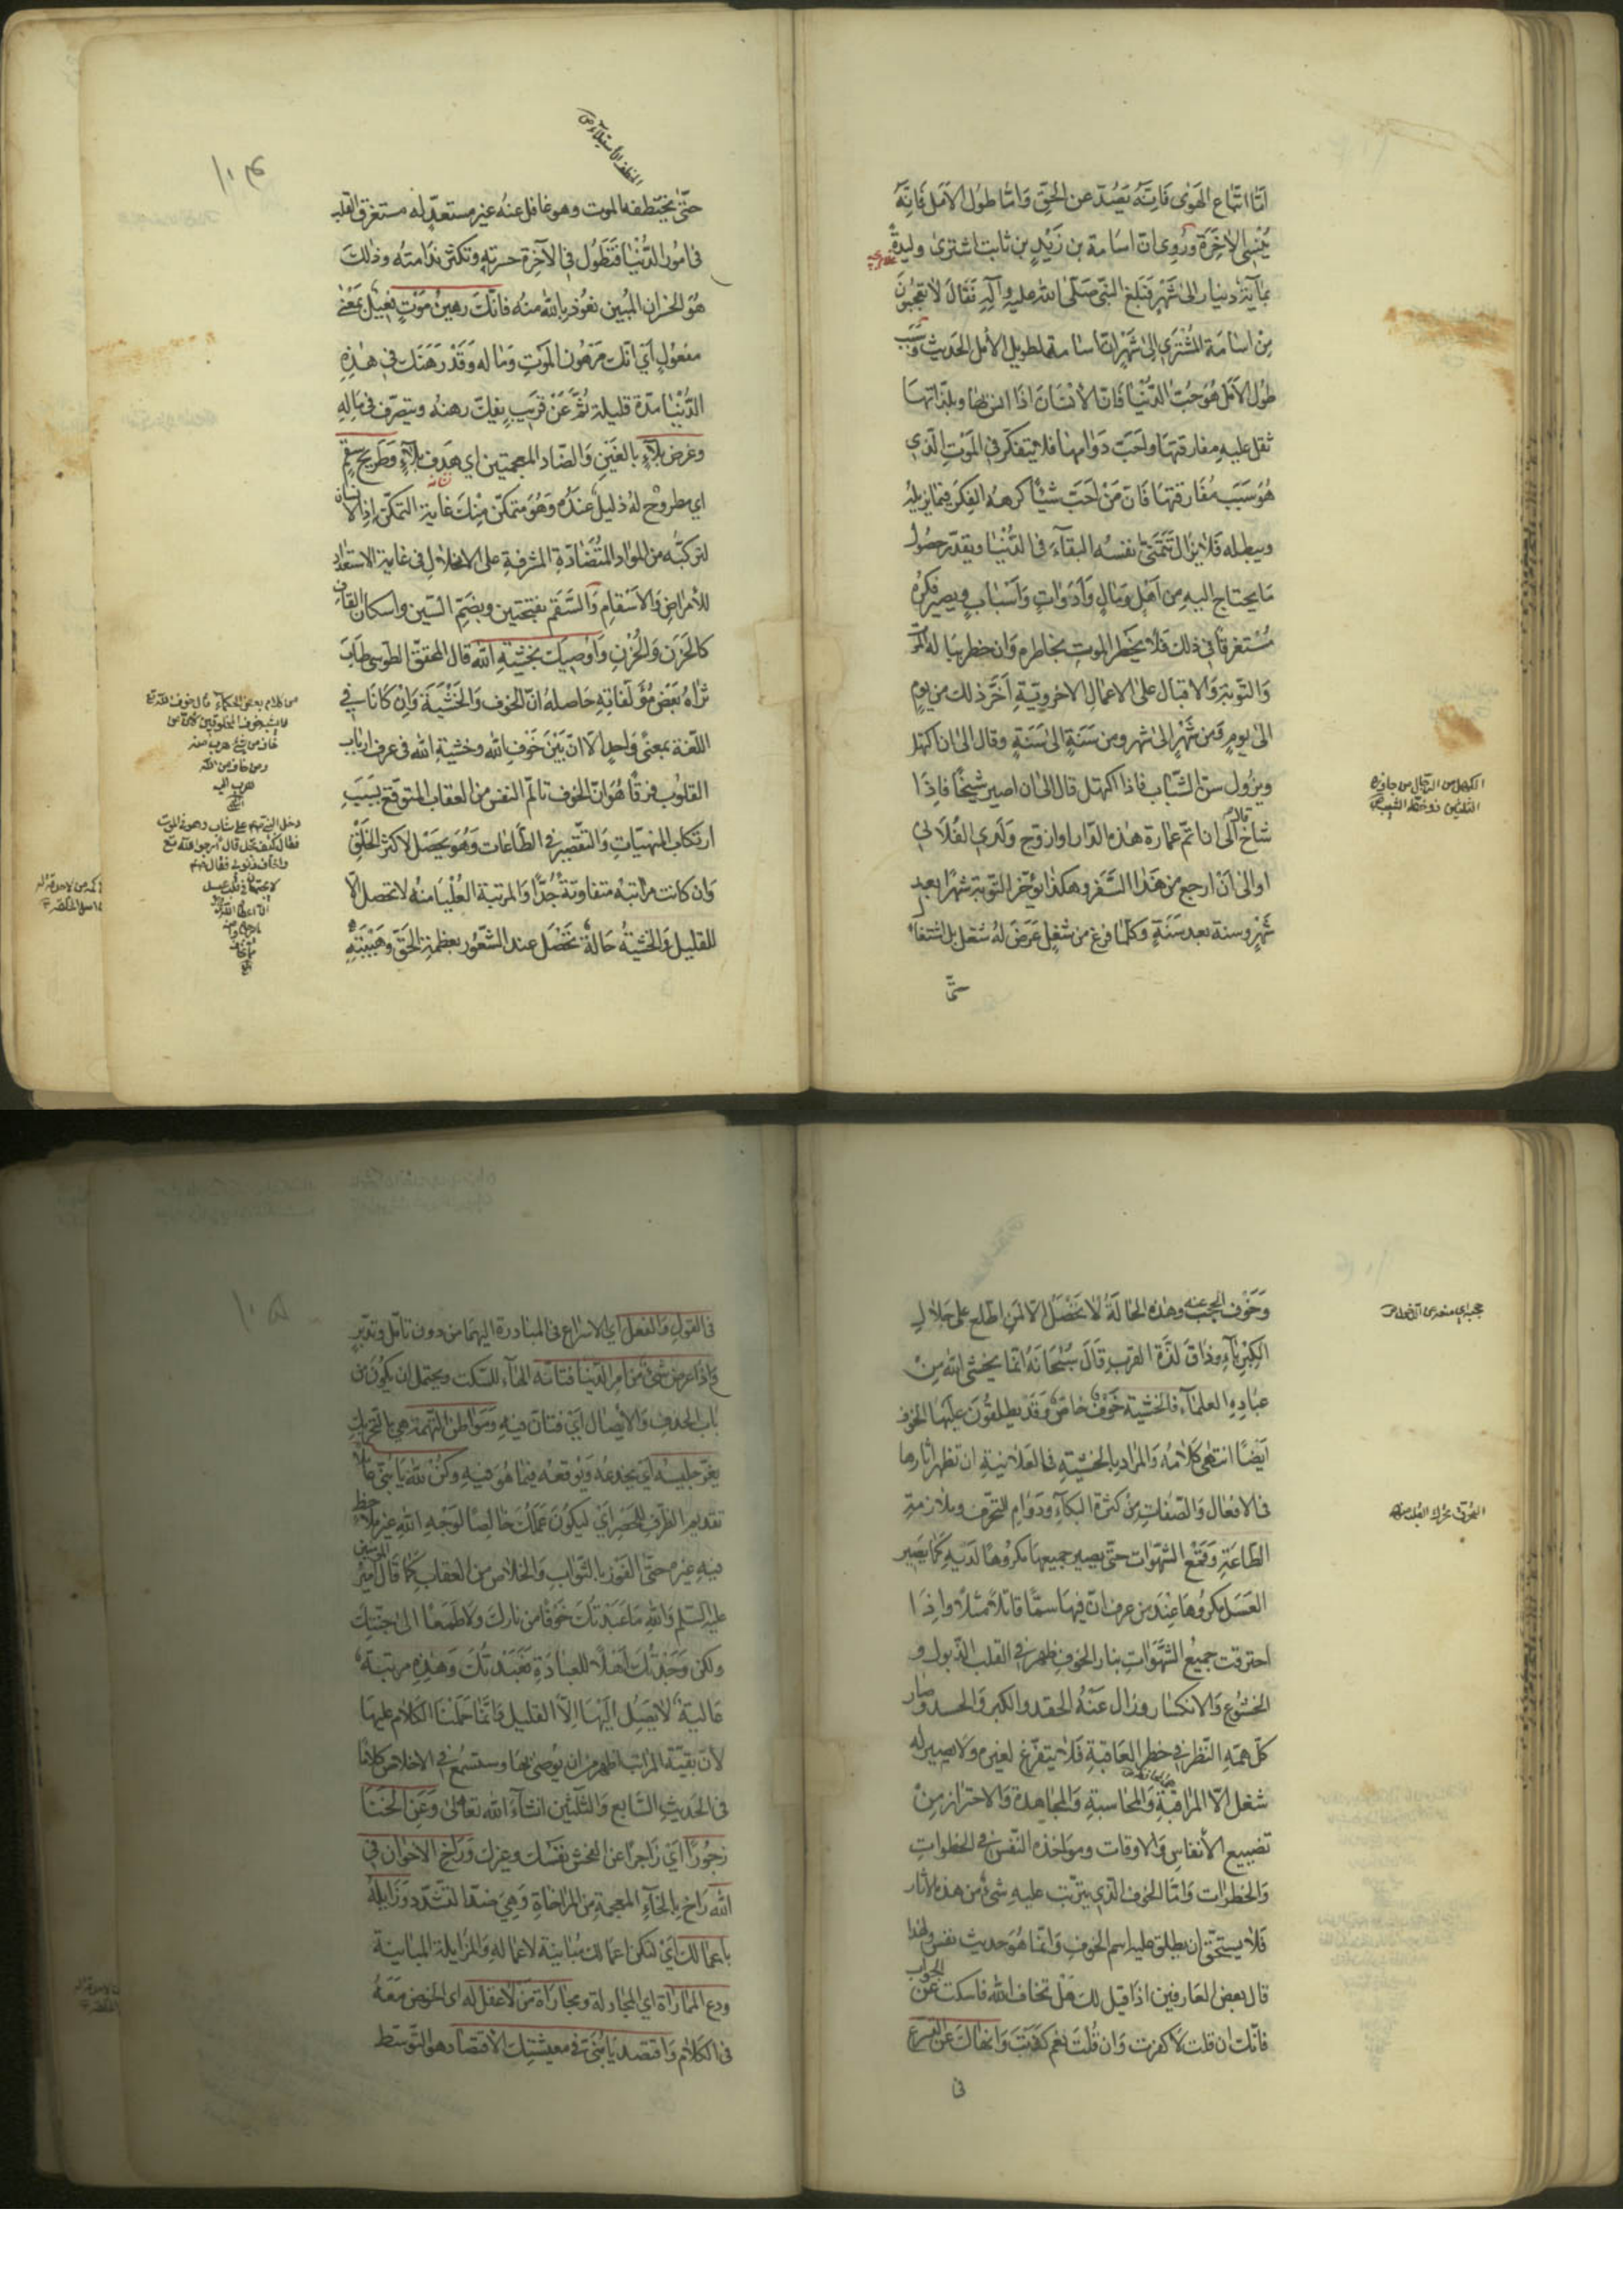 امّا اتّباع الهَوٰى فَاِنّه يَصُدّ عن الحَقّ وَامّا طولُ الاَمَل فَاِنّهُ
يُنْسِي الآخِرَة وَرُوِى ان اسَامة بن زَيْدِ بن ثابت اشترىٰ وليدةً
بمأية دينار الىٰ شَهْرٍ فبَلغ النبّى صَلّى اللّٰه عليه وَآلِهِ فَقَالَ لا تعجبُونَ
مِنْ اسَامَة المُشْتَرِي الىٰ شَهْرٍ انّ اسَامة لطويل الأمل الحَديث وَسَبَب
طول الاَمَل هُوَ حبّ الدّنْيَا فَانّ الانْسَانَ اذَا انس بهَا وبلذّاتهَا
ثقل عليهِ مفارقتهَا واحَبّ دَوَامهَا فلا يتفكّر في المَوْتِ الّذي
هُوَ سَبَب مُفَارقتهَا فَانّ مَنْ احَبّ شيْئًا كرهَ الفِكَر فيمَا يزيلهُ
ويبطله فَلا يزال تَتَمَنّى نفسُه البقآءَ فى الدّنْيَا ويقدّر حصُول
مَا يحتاج اليهِ مِن اَهْلٍ وَمَالٍ وَاَدَوَاتٍ وَاَسْبَابٍ ويصير فكرُهُ
مُسْتغرقًا في ذلك فَلا يخطر الموت بخاطره وَان خطر بباله
وَالتّوبَة وَالاقبَال على الاعمَال الاخرويّةِ اَخّرَ ذلك من يومٍ
الىٰ يومٍ وَمِن شَهْرٍ الىٰ شَهر ومن سَنَةٍ الىٰ سَنَةٍ وقال الىٰ ان اكتهل
ويزُول سنّ الشّبَاب فاذا اكتهل قال الىٰ ان اصير شيخًا فاِذَا
شاخ قال الىٰ ان اتمّ عمَارة هذه الدّار او ازوّج وَلَدِي الفُلاني
او الىٰ اَنْ ارجع من هَذَا السَّفر وهكذا يؤخّر التّوبَة شهْرًا بعد
شَهْرٍ وسنَة بعد سَنَةٍ وَكلّمَا فرغ من شغلٍ عَرَضَ لهُ شغل
الكهل من الرّجال من جاوز
الثلثين
حتّىٰ يختطفه الموت وهو غافل عنهُ غير مستعدّ له مستغرق القلب
فى امُور الدُّنْيَا فَتَطُول فى الآخِرة حسرتهُ وتكثر ندامتُه وذٰلكَ
هُوَ الخسرَان المُبين نعُوذ باللّٰه منهُ فانّكَ رهينُ مَوْتٍ فعيل بمَعْنىٰ
مفعُولٍ اَي انّك مَرهُون المَوتِ وَمَاله وَقَدْ رَهَنَك في هٰذِهِ
الدُّنْيَا مدّة قليلة ثُمّ عَنْ قريبٍ يفكّ رهنهُ ويتصرّف في مَالِهِ
وغرض بلآءٍ بالغَيْنِ وَالضّاد المعجمتين اي هدف بلآءٍ وَطريح سقم
اى مطروح لهُ ذليل عندَهُ وَهُوَ متمكّن مِنْكَ غاية التمكّن اِذِ الانسان
لتركّبه من الموَادّ المُتَضَادّة المشرفةِ على الانحلال في غاية الاستعداد
للأمراض وَالاَسْقامِ وَالسَّقَم بفتحتين وبضَمّ السّين واسكان القاف
كالحَزَن وَالحُزْنِ وَاُوصيك بخشيةِ اللّٰه قال المحقّق الطّوسى طَابَ
ثرَاهُ بَعْض مُؤَلّفاتِهِ حَاصلهُ انّ الخوف وَالخَشْيَة وَانْ كَانَا في
اللّغة بمعنىً وَاحدٍ الا انّ بَيْنَ خَوفِ اللّٰه وخشيةِ اللّٰه فى عرف اربَاب
القلوُب فرقًا هُوَ انّ الخوف تالّم النفس من العقَاب المتوقّع بسَبَبِ
ارتكاب المنهيّاتِ وَالتقصِير في الطّاعات وَهُوَ يحصَل لاكثر الخَلْقِ
وَان كانت مراتبهُ متفاوتةً جُدًّا وَالمرتبة العُلْيَا منهُ لا تحصل الّا
للقليل وَالخشيةُ حَالةٌ تَحْصَل عند الشّعُور بعظمة الحَقّ وَهَيْبَتِهِ
من كلام بعض الحكمآء
خاف من شئ هرب منه
ومن خاف من اللّه
هرب اليه
وَخَوْف الحجب عنه وهذه الحَالَةُ لاٰ تحْصَلُ الّا لمَنِ اطّلع على جَلاٰلِ
الكِبْرِيَآءِ وذَاقَ لذّة القرب قَالَ سُبْحَانَهُ انّما يخشى اللّٰه مِنْ
عبَادِهِ العلمَآءِ فالخشيَة خَوْفٌ خاصّ وَقَدْ يطلقُونَ عليهَا الخوف
اَيضًا انتهى كَلاٰمهُ وَالمُرَاد بالخشيةِ فى العَلاٰنيَةِ ان تظهر اٰثارها
فى الافعَال وَالصّفات مِنْ كثرة البكآءِ ودَوَامِ التّحرّق وملازمة
الطّاعَةِ وَقمْعِ الشّهَوات حتّى يصير جميعهَا مكروُهًا لدَيهِ كمَا يَصير
العَسَل مكروُهًا عِنْدَ من عرف انّ فيهَا سمًّا قاتلاً مثَلاً وَاِذَا
احترقت جميعُ الشّهَوَاتِ بنار الخوف ظهر في القلب الذّبول و
الخشُوع وَالانكسَار وزال عَنْهُ الحقد والكبر وَالحسد وصار
كلّ همّه النّظر في خطر العَاقبةِ فَلاٰ يتفرّغ لغيره ولا يصير له
شغل الّا المرَاقبَةِ وَالمحَاسبةِ وَالمجَاهدة وَالاحترَاز مِنْ
تضييع الأنفاسِ وَالاوقات ومواخذة النّفس في الخطوات
وَالخطرَات وَامّا الخوف الّذي يترتّب عليهِ شئ من هذه الاثار
فَلاٰ يستَحقّ ان يطلق عليه اسم الخوفِ وَانّمَا هُوَ حديث نفس ولهذا
قال بعض العَارفين اذا قيل لك هَلْ تخاف اللّٰه فاسكت عن الجواب
فانّك ان قلت لاَ كفرت وَان قُلْتَ نعم كذَبْتَ وَانهاكَ عن التسرع
فى
فى القول وَالفعل اي الاسرَاع فى المبَادرة اليهمَا من دون تامّل وتدبّرٍ
وَاذَا عرض شئ من امر الدّنيَا فتأنّه الهَآء للسّكت ويحتمل ان يكُون من
بَاب الحذف وَالايصَال اَي فتانّ فيهِ وَمَوَاطن التّهمَة
يغرّ جليسهُ اَي يخدعُه وَيُوقعهُ فيمَا هُوَ فيهِ وكنْ للّٰه يَا بُنَيّ عاملاً
تقديم الظّرف للحصر اي ليكُونَ عَمَلُكَ خالصًا لوَجْهِ اللّٰه غير ملاحظ
فيهِ غيره حتّى الفَوْز بالثّوَاب وَالخلاَص من العقَاب كمَا قَالَ امير المؤمنين
عليه السّلم وَاللّٰهِ مَا عَبَدْتكَ خَوْفًا من نارك وَلاَ طَمَعًا الىٰ جنّتِكَ
ولكن وَجَدْتُكَ اَهلاً للعبَادَةِ فَعَبَدْتُكَ وَهٰذِهِ مرتبَةٌ
عَاليَةٌ لاٰ يَصِل اِلَيْهَا اِلّا القليل وَانّمَا حَمَلْنَا الكَلاٰمَ عليهَا
لأنّ بقيّة المراتب اظهر من ان يُوصَى بهَا وستسمع في الاخلاص كلامًا
فى الحَديثِ السّابع وَالثّلثين انشآءَ اللّٰه تعَالىٰ وَعَنِ الخَنَا
زجُورًا اَي زَاجرًا عن الفحش نفسَك وغيرك وَرَاخ الاخوَان في
اللّٰه رَاخ بالخآءِ المعجمة من المرَاخاة وَهِيَ ضدّ التشدّد وَزَايلهُ
باعمَالك اَي لتكن اعمَالك مُبَاينة لاعمَالهِ وَالمزَايلَة المبَاينَة
ودع الممَارَاة اي المجَادلة ومجَارَاة مَنْ لاٰ عقل له اى الخوض مَعَهُ
فى الكلاٰم وَاقتصد يَا بُنَيّ في معيشتِك الاقتصَاد هو التّوسّط